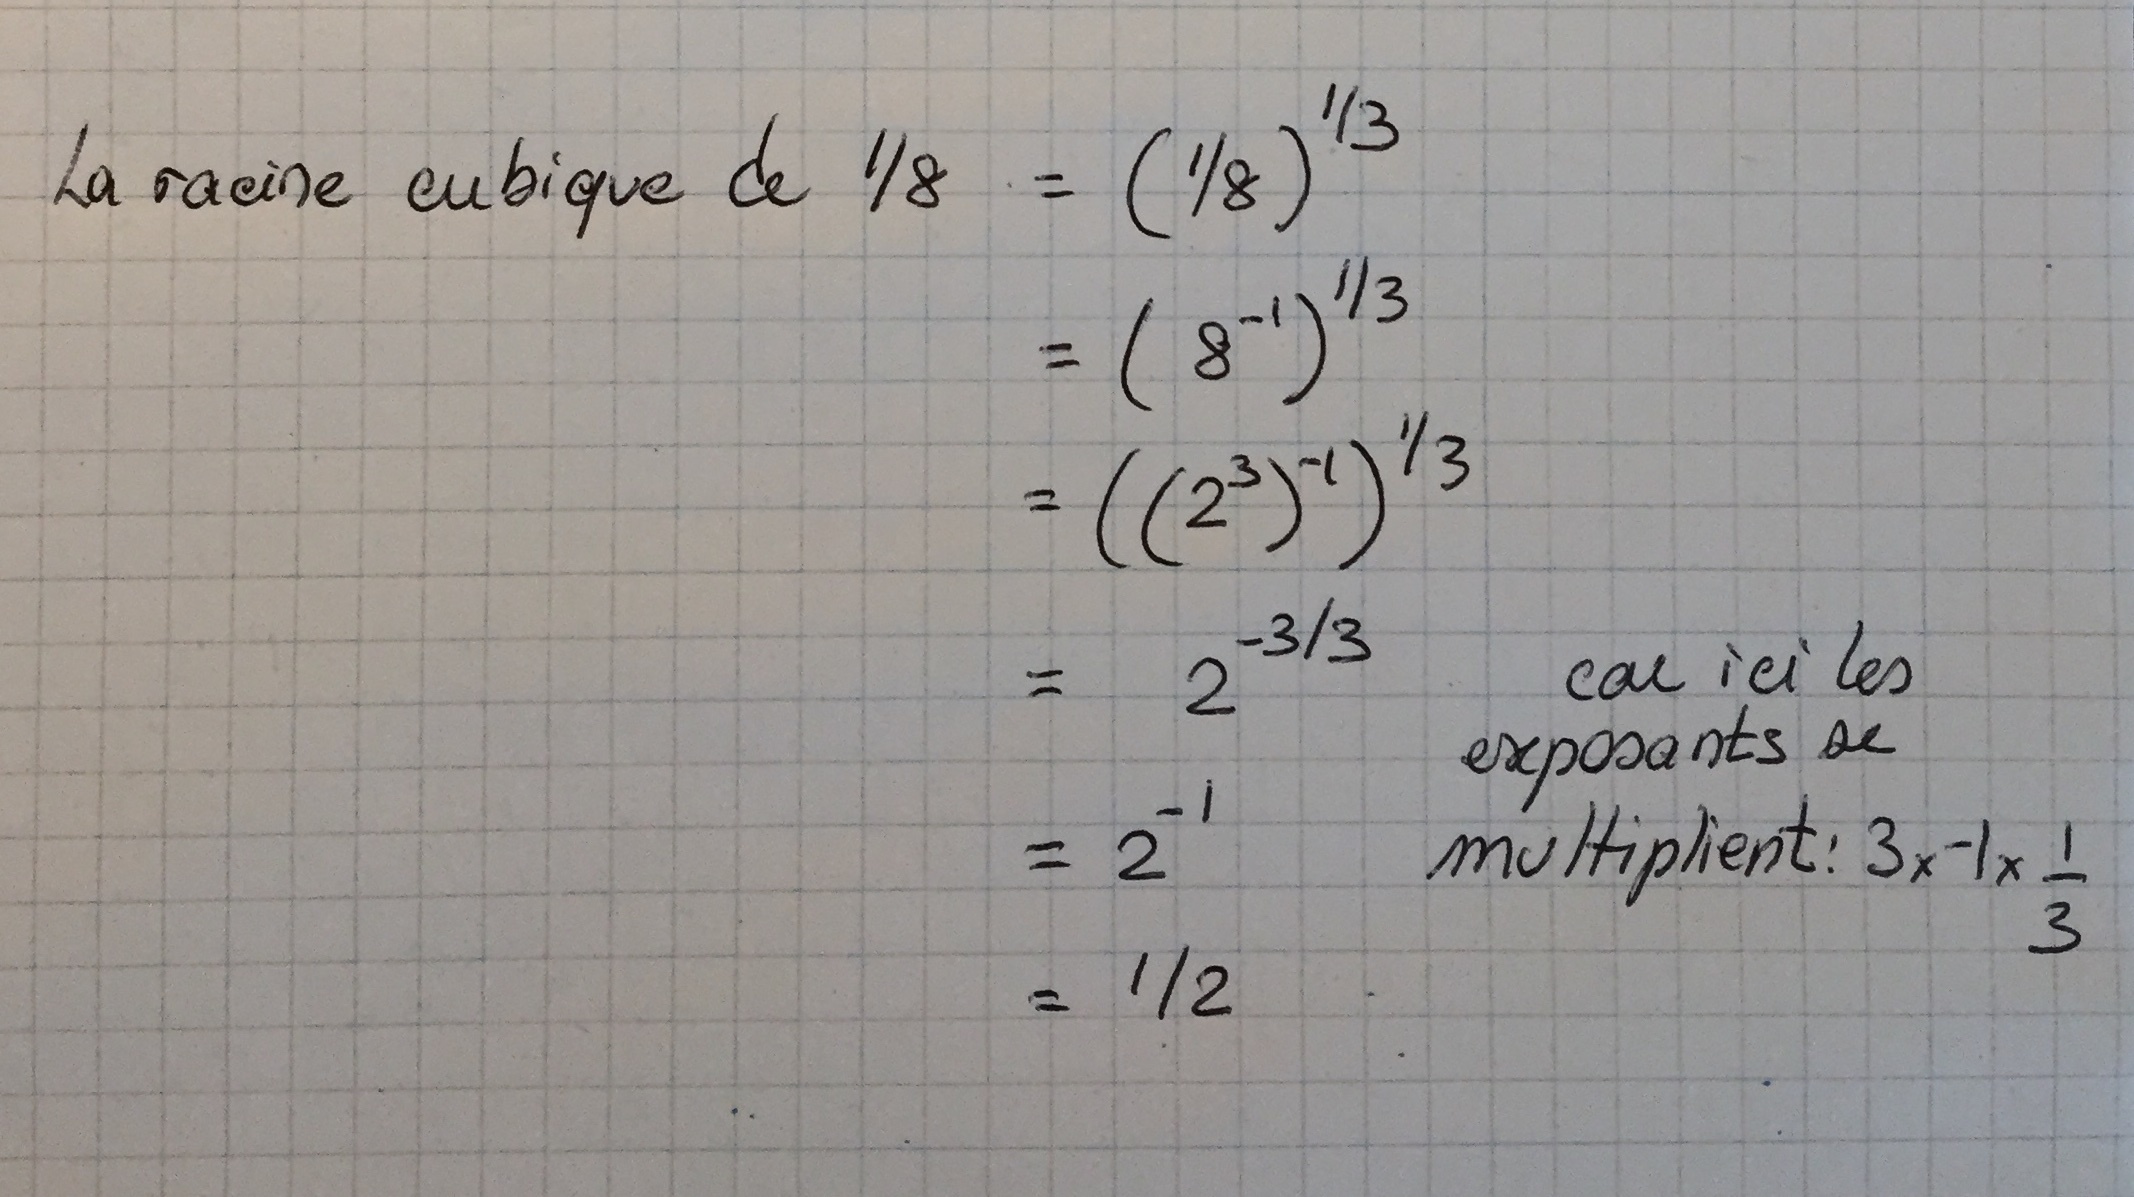 La racine cubique de 1/8 = (1/8)^1/3
= (8^-1)^1/3
= ((2^3)^-1)^1/3
= 2^-3/3 car ici les
exposants se
= 2^-1 multiplient: 3x-1x 1/3
= 1/2